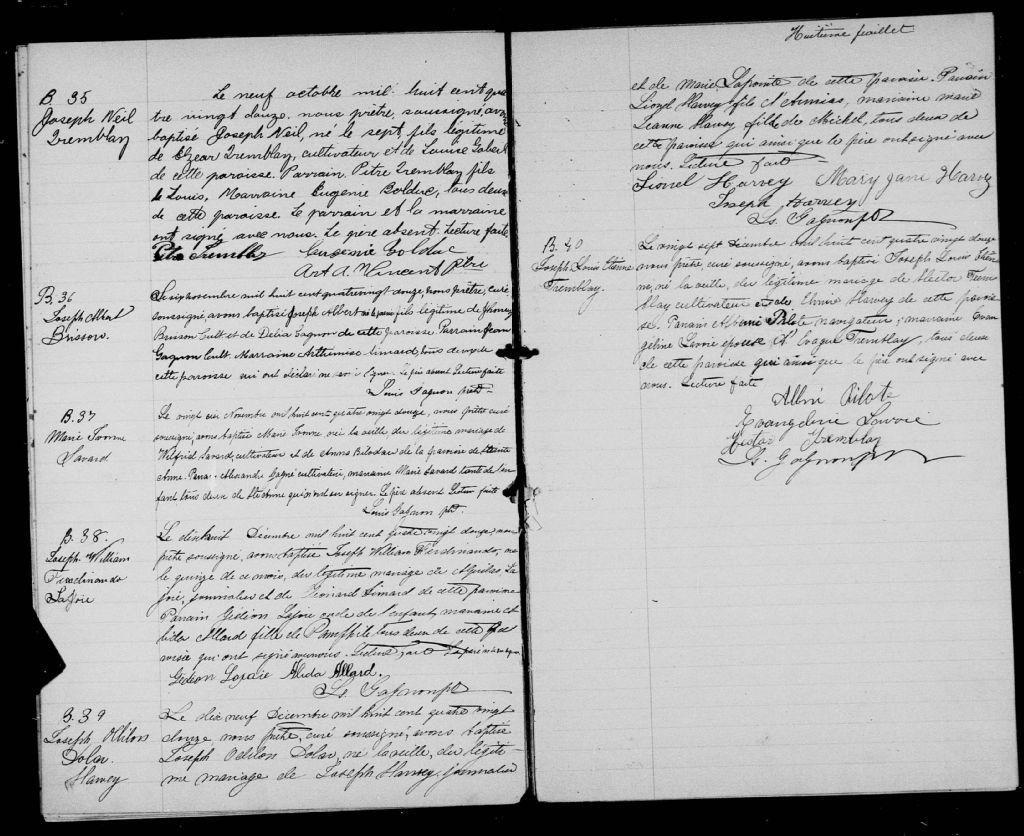 B. 35
Joseph Neil
Tremblay
Le neuf octobre mil huit cent qua
tre vingt douze, nous prêtre, soussigné, avons
baptisé Joseph Neil, né le sept, fils légitime
de Elzear Tremblay, cultivateur et de Louise Gobeil
de cette paroisse. Parrain Pitre Tremblay fils
de Louis, Marraine Eugenie Boldu, tous deux
de cette paroisse. Le parrain et la marraine
ont signé avec nous. Le père absent. Lecture faite
Pitre Tremblay Eugenie Boldu
Art A. Vincent Ptre
B. 36
Joseph Albert
Brisson
Le six novembre mil huit cent quatre vingt douze, nous prêtre, curé
soussigné, avons baptisé Joseph Albert fils légitime de
Brisson Cult. et de Delia Gagnon de cette paroisse. Parrain Jean
Gagnon Cult. Marraine Arthemise Simard, tous deux de
cette paroisse qui ont déclaré ne savoir signer. Le père absent Lecture faite
Louis Gagnon ptre
B. 37
Marie Ivonne
Savard
Le vingt un Novembre mil huit cent quatre vingt douze, nous prêtre curé
soussigné, avons baptisé Marie Ivonne née la veille du légitime mariage de
Wilfrid Savard, cultivateur et de Anna Bilodeau de la paroisse de Sainte
Anne. Parrain Alexandre Gagné cultivateur, marraine Marie Savard tante de l'en
fant, tous deux de Ste Anne qui n'ont su signer. Le père absent Lecture faite
Louis Gagnon ptr.
B. 38.
Joseph William
Ferdinando
Lajoie
Le dixhuit Décembre mil huit cent quatre vingt douze, nous
prêtre soussigné, avons baptisé Joseph William Ferdinando, né
le quinze de ce mois, du légitime mariage de La
joie, journalier et de Simard de cette paroisse
Parrain Gédéon Lajoie oncle de l'enfant, marraine
Alida Allard fille de Pamphile tous deux de cette pa
roisse qui ont signé avec nous. Lecture fait
Gédéon Lajoie Alida Allard.
Ls. Gagnon ptr
B. 39
Joseph Odilon
Dolar
Harvey
Le dix neuf Décembre mil huit cent quatre vingt
douze nous prêtre, curé soussigné, avons baptisé
Joseph Odilon Dolar, né la veille, du légiti-
me mariage de Joseph Harvey, journalier
Huitième feuillet
et de Marie Lapointe de cette paroisse. Parrain
Lionel Harvey fils d' marraine Marie
Jeanne Harvey fille de Michel, tous deux de
cette paroisse qui ainsi que le père ont signé avec
nous. Lecture fait
Lionel Harvey Mary Jane Harvey
Joseph Harvey
Ls. Gagnon ptr
B. 40
Joseph Louis Etienne
Tremblay.
Le vingt sept Décembre mil huit cent quatre vingt douze
nous prêtre, curé soussigné, avons baptisé Joseph Louis Etien
ne, né la veille, du légitime mariage de Hector Trem
blay cultivateur et de Harvey de cette parois
se. Parrain Albini Pilote, navigateur, marraine Evan
geline Lavoie epouse d' Tremblay, tous deux
de cette paroisse qui ainsi que le père ont signé avec
nous. Lecture faite
Albini Pilote
Evangeline Lavoie
Hector Tremblay
Ls. Gagnon ptr